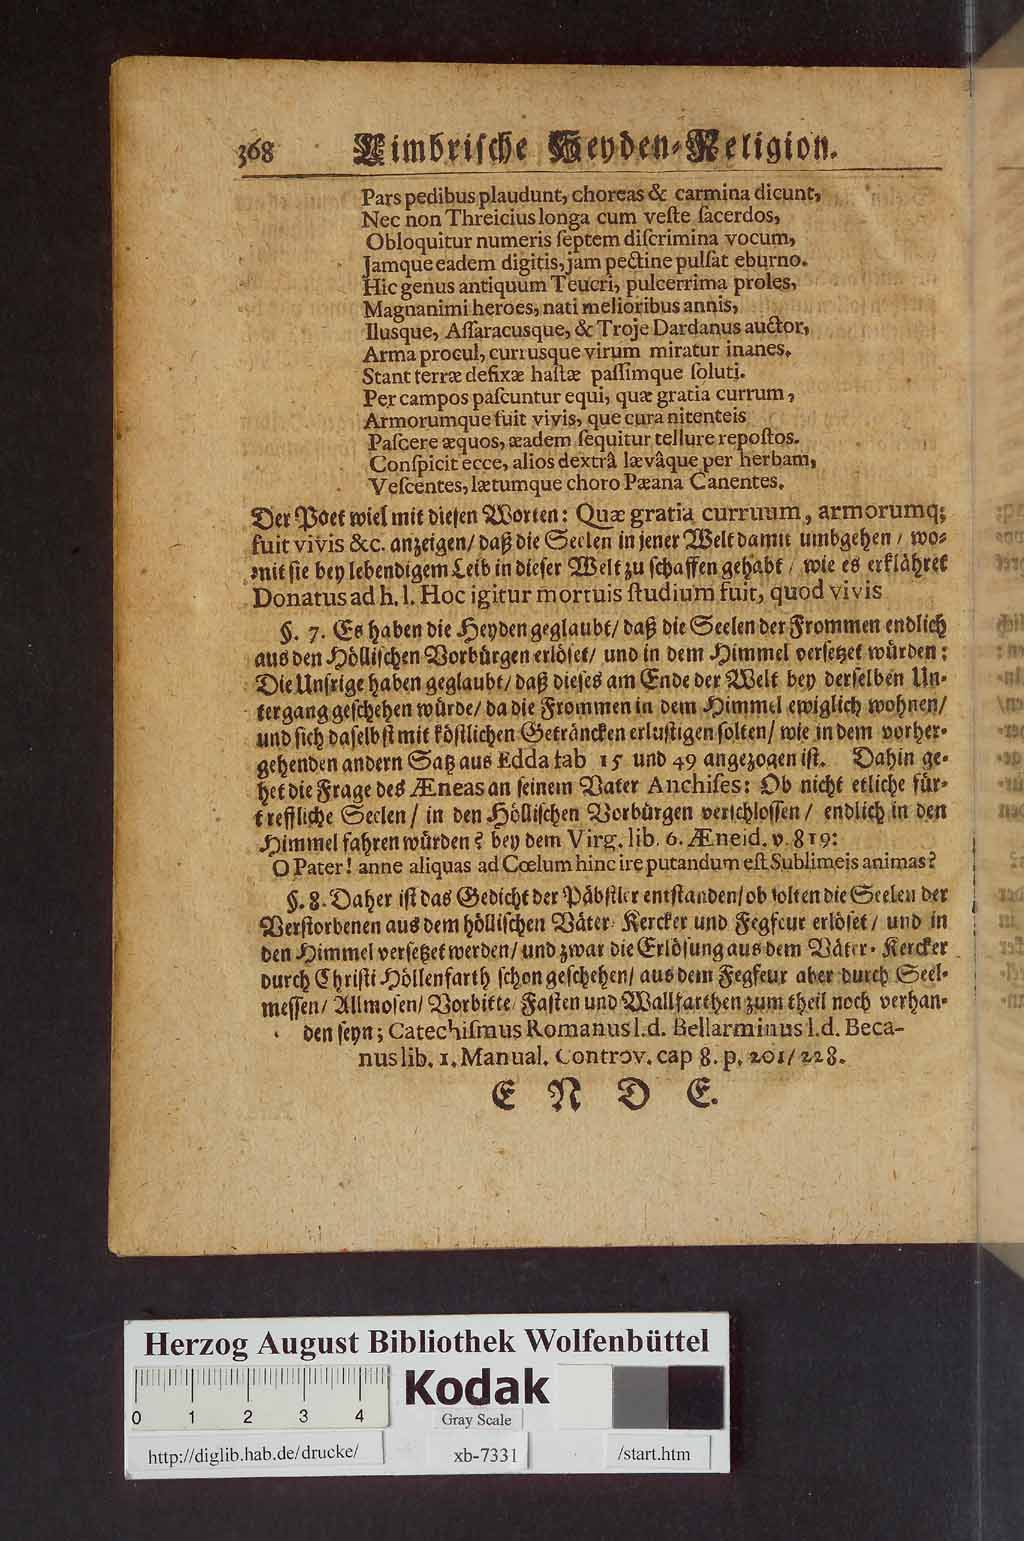 368 Cimbrische Heyden-Religion.
Pars pedibus plaudunt, choreas & carmina dicunt,
Nec non Threicius longa cum veſte ſacerdos,
Obloquitur numeris ſeptem diſcrimina vocum,
Jamque eadem digitis, jam pectine pulſat eburno.
Hic genus antiquum Teucri, pulcerrima proles,
Magnanimi heroes, nati melioribus annis,
Ilusque, Aſſaracusque, & Troje Dardanus auctor,
Arma procul, currusque virum miratur inanes.
Stant terræ defixæ haſtæ paſſimque ſoluti.
Per campos paſcuntur equi, quæ gratia currum,
Armorumque fuit vivis, que cura nitenteis
Paſcere æquos, æadem ſequitur tellure repoſtos.
Conſpicit ecce, alios dextrâ lævâque per herbam,
Veſcentes, lætumque choro Pæana Canentes.
Der Poet wiel mit dieſen Worten: Quæ gratia curruum, armorumq;
fuit vivis &c. anzeigen/ daß die Seelen in jener Welt damit umbgehen/ wo-
mit ſie bey lebendigem Leib in dieſer Welt zu ſchaffen gehabt/ wie es erklähret
Donatus ad h. l. Hoc igitur mortuis ſtudium fuit, quod vivis
§. 7. Es haben die Heyden geglaubt/ daß die Seelen der Frommen endlich
aus den Höllischen Vorbürgen erlöſet/ und in dem Himmel verſetzet würden:
Die Unſrige haben geglaubt/ daß dieſes am Ende der Welt bey derſelben Un-
tergang geſchehen würde/ da die Frommen in dem Himmel ewiglich wohnen/
und ſich daſelbſt mit köſtlichen Geträncken erluſtigen ſolten/ wie in dem vorher-
gehenden andern Satz aus Edda fab 15 und 49 angezogen iſt. Dahin ge-
het die Frage des Æneas an ſeinem Vater Anchiſes: Ob nicht etliche für-
treffliche Seelen/ in den Höllischen Vorbürgen verſchloſſen/ endlich in den
Himmel fahren würden? bey dem Virg. lib. 6. Æneid. v. 819:
O Pater! anne aliquas ad Cœlum hinc ire putandum eſt Sublimeis animas?
§. 8. Daher iſt das Gedicht der Päbſtler entſtanden/ ob ſolten die Seelen der
Verſtorbenen aus dem höllischen Väter-Kercker und Fegfeur erlöſet/ und in
den Himmel verſetzet werden/ und zwar die Erlöſung aus dem Väter-Kercker
durch Chriſti Höllenfarth ſchon geſchehen/ aus dem Fegfeur aber durch Seel-
meſſen/ Allmoſen/ Vorbitte/ Faſten und Wallfarthen zum theil noch verhan-
den ſeyn; Catechiſmus Romanus l. d. Bellarminus l. d. Beca-
nus lib. 1. Manual. Controv. cap 8. p. 201/ 228.
E N D E.
Herzog August Bibliothek Wolfenbüttel
0 1 2 3 4
Kodak
Gray Scale
http://diglib.hab.de/drucke/ xb-7331 /start.htm